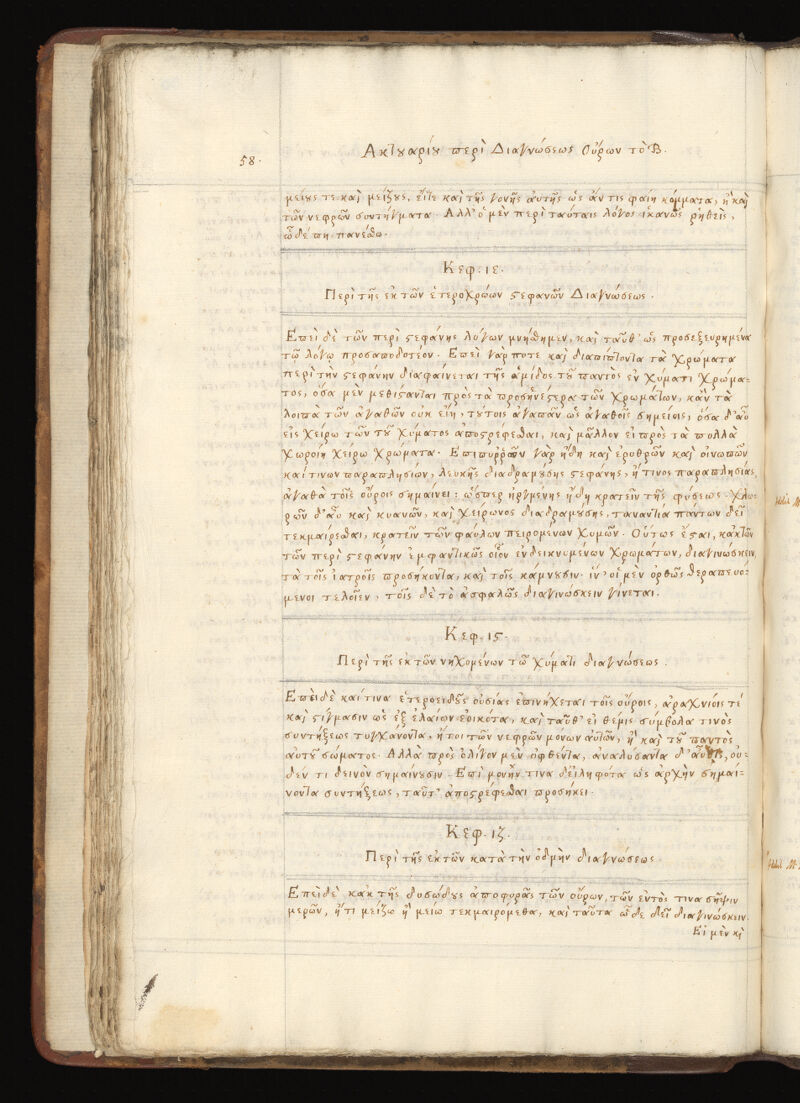 58.
Ακτȣαρίȣ περὶ Διαγνώσεως Οὔρων τὸ Β.
μείȣς τε καὶ μείζȣς, εἴτε καὶ τῆς γονῆς αὐτῆς ὡς ἄν τις φαίη κόμματα, ἢ καὶ
τῶν νεφρῶν συντήγματα. Αλλ' ὁ μὲν περὶ ταύταις λόγος ἱκανῶς ῥηθεὶς,
ὧδέ πη πανέσθω.
Κεφ. ιε.
Περὶ τῆς ἐκ τῶν ἑτεροχρόων ϛεφανῶν Διαγνώσεως.
Επεὶ δὲ τῶν περὶ ϛεφάνης λόγων μνήσθημεν, καὶ ταῦθ' ὡς προσεξευρημένα
τῷ λόγῳ προσαποδοτέον. Επεὶ γάρ ποτε καὶ διαπίπτοντα τὰ Χρώματα
περὶ τὴν ϛεφάνην διαφαίνεται τῆς ἀμίδος τȣ͂ παντὸς ἐν Χύματι Χρώμα-
τος, ὅσα μὲν μεθίϛανται πρὸς τὰ προσηνέϛερα τῶν Χρωμάτων, κἂν τὰ
λοιπὰ τῶν ἀγαθῶν οὐκ εἴη, τȣτοις ἀγαπᾶν ὡς ἀγαθοῖς σημείοις, ὅσα δ' αὖ
εἰς Χείρω τῶν τȣ͂ Χύματος ἀποϛρέφεσθαι, καὶ μᾶλλον εἰ πρὸς τὰ πολλὰ
Χωροίη Χείρω Χρώματα. Επιπυρρῶν γὰρ ἤδη καὶ ἐρυθρῶν καὶ οἰνωπῶν
καί τινων παραπλησίων, λευκῆς διαδραμȣ́σης ϛεφάνης, ἤ τινος παραπλησίας
ἀγαθὰ τοῖς οὔροις σημαίνει: ὥσπερ ἠργμένης ἤδη κρατεῖν τῆς φύσεως. Χλω-
ρῶν δ' αὖ καὶ κυανῶν, καὶ Χείρωνος διαδραμȣ́σης, τἀναντία πάντων δεῖ
τεκμαίρεσθαι, κρατεῖν τῶν φαύλων πειρομένων Χυμῶν. Οὕτως ἔϛαι, κἀκ τῶν
τῶν περὶ ϛεφάνην ἐμφαντικῶς οἷον ἐνδεικνυμένων Χρωμάτων, διαγινώσκειν
τὰ τοῖς ἰατροῖς προσήκοντα, καὶ τοῖς κάμνȣσιν. ἵν' οἱ μὲν ὀρθῶς θεραπευό-
μενοι τελοῖεν, τοῖς δὲ τὸ ἀσφαλῶς διαγινώσκειν γίνεται.
Κεφ. ιϛ.
Περὶ τῆς ἐκ τῶν νηχομένων τῷ Χύματι διαγνώσεως.
Επεὶ δὲ καί τινα ἑτεροειδȣ͂ς οὐσίας ἐπινήχεται τοῖς οὔροις, ἀραχνίοις τέ
καὶ ϛίγμασιν ὡς ἐξ ἐλαίων ἐοικότα, καὶ ταῦθ' εἰ θέμις σύμβολα τινὸς
συντήξεως τυγχάνοντα, ἤτοι τῶν νεφρῶν μόνων αὐτῶν, ἢ καὶ τȣ͂ παντὸς
αὐτȣ͂ σώματος. Αλλὰ πρὸς ὀλίγον μὲν ὀφθέντα, ἀναλύσαντα δ' αὖθις, οὐ-
δέν τι δεινὸν σημαίνȣσιν. Επὶ μονὴν τινα δ' εἰληφότα ὡς ἀρχὴν σημαί-
νοντα συντήξεως, ταῦτ' ἀποϛρέφεσθαι προσήκει.
Κεφ. ιζ.
Περὶ τῆς ἐκ τῶν κατὰ τὴν ὀδμὴν διαγνώσεως.
Επεὶ δὲ κἀκ τῆς δυσώδȣς ἀποφορᾶς τῶν οὔρων, τῶν ἐντός τινα σῆψιν
μερῶν, ἤτι μείζω ἢ μείω τεκμαιρόμεθα, καὶ ταῦτα ὧδε δεῖ διαγινώσκειν.
Εἰ μὲν κỳ